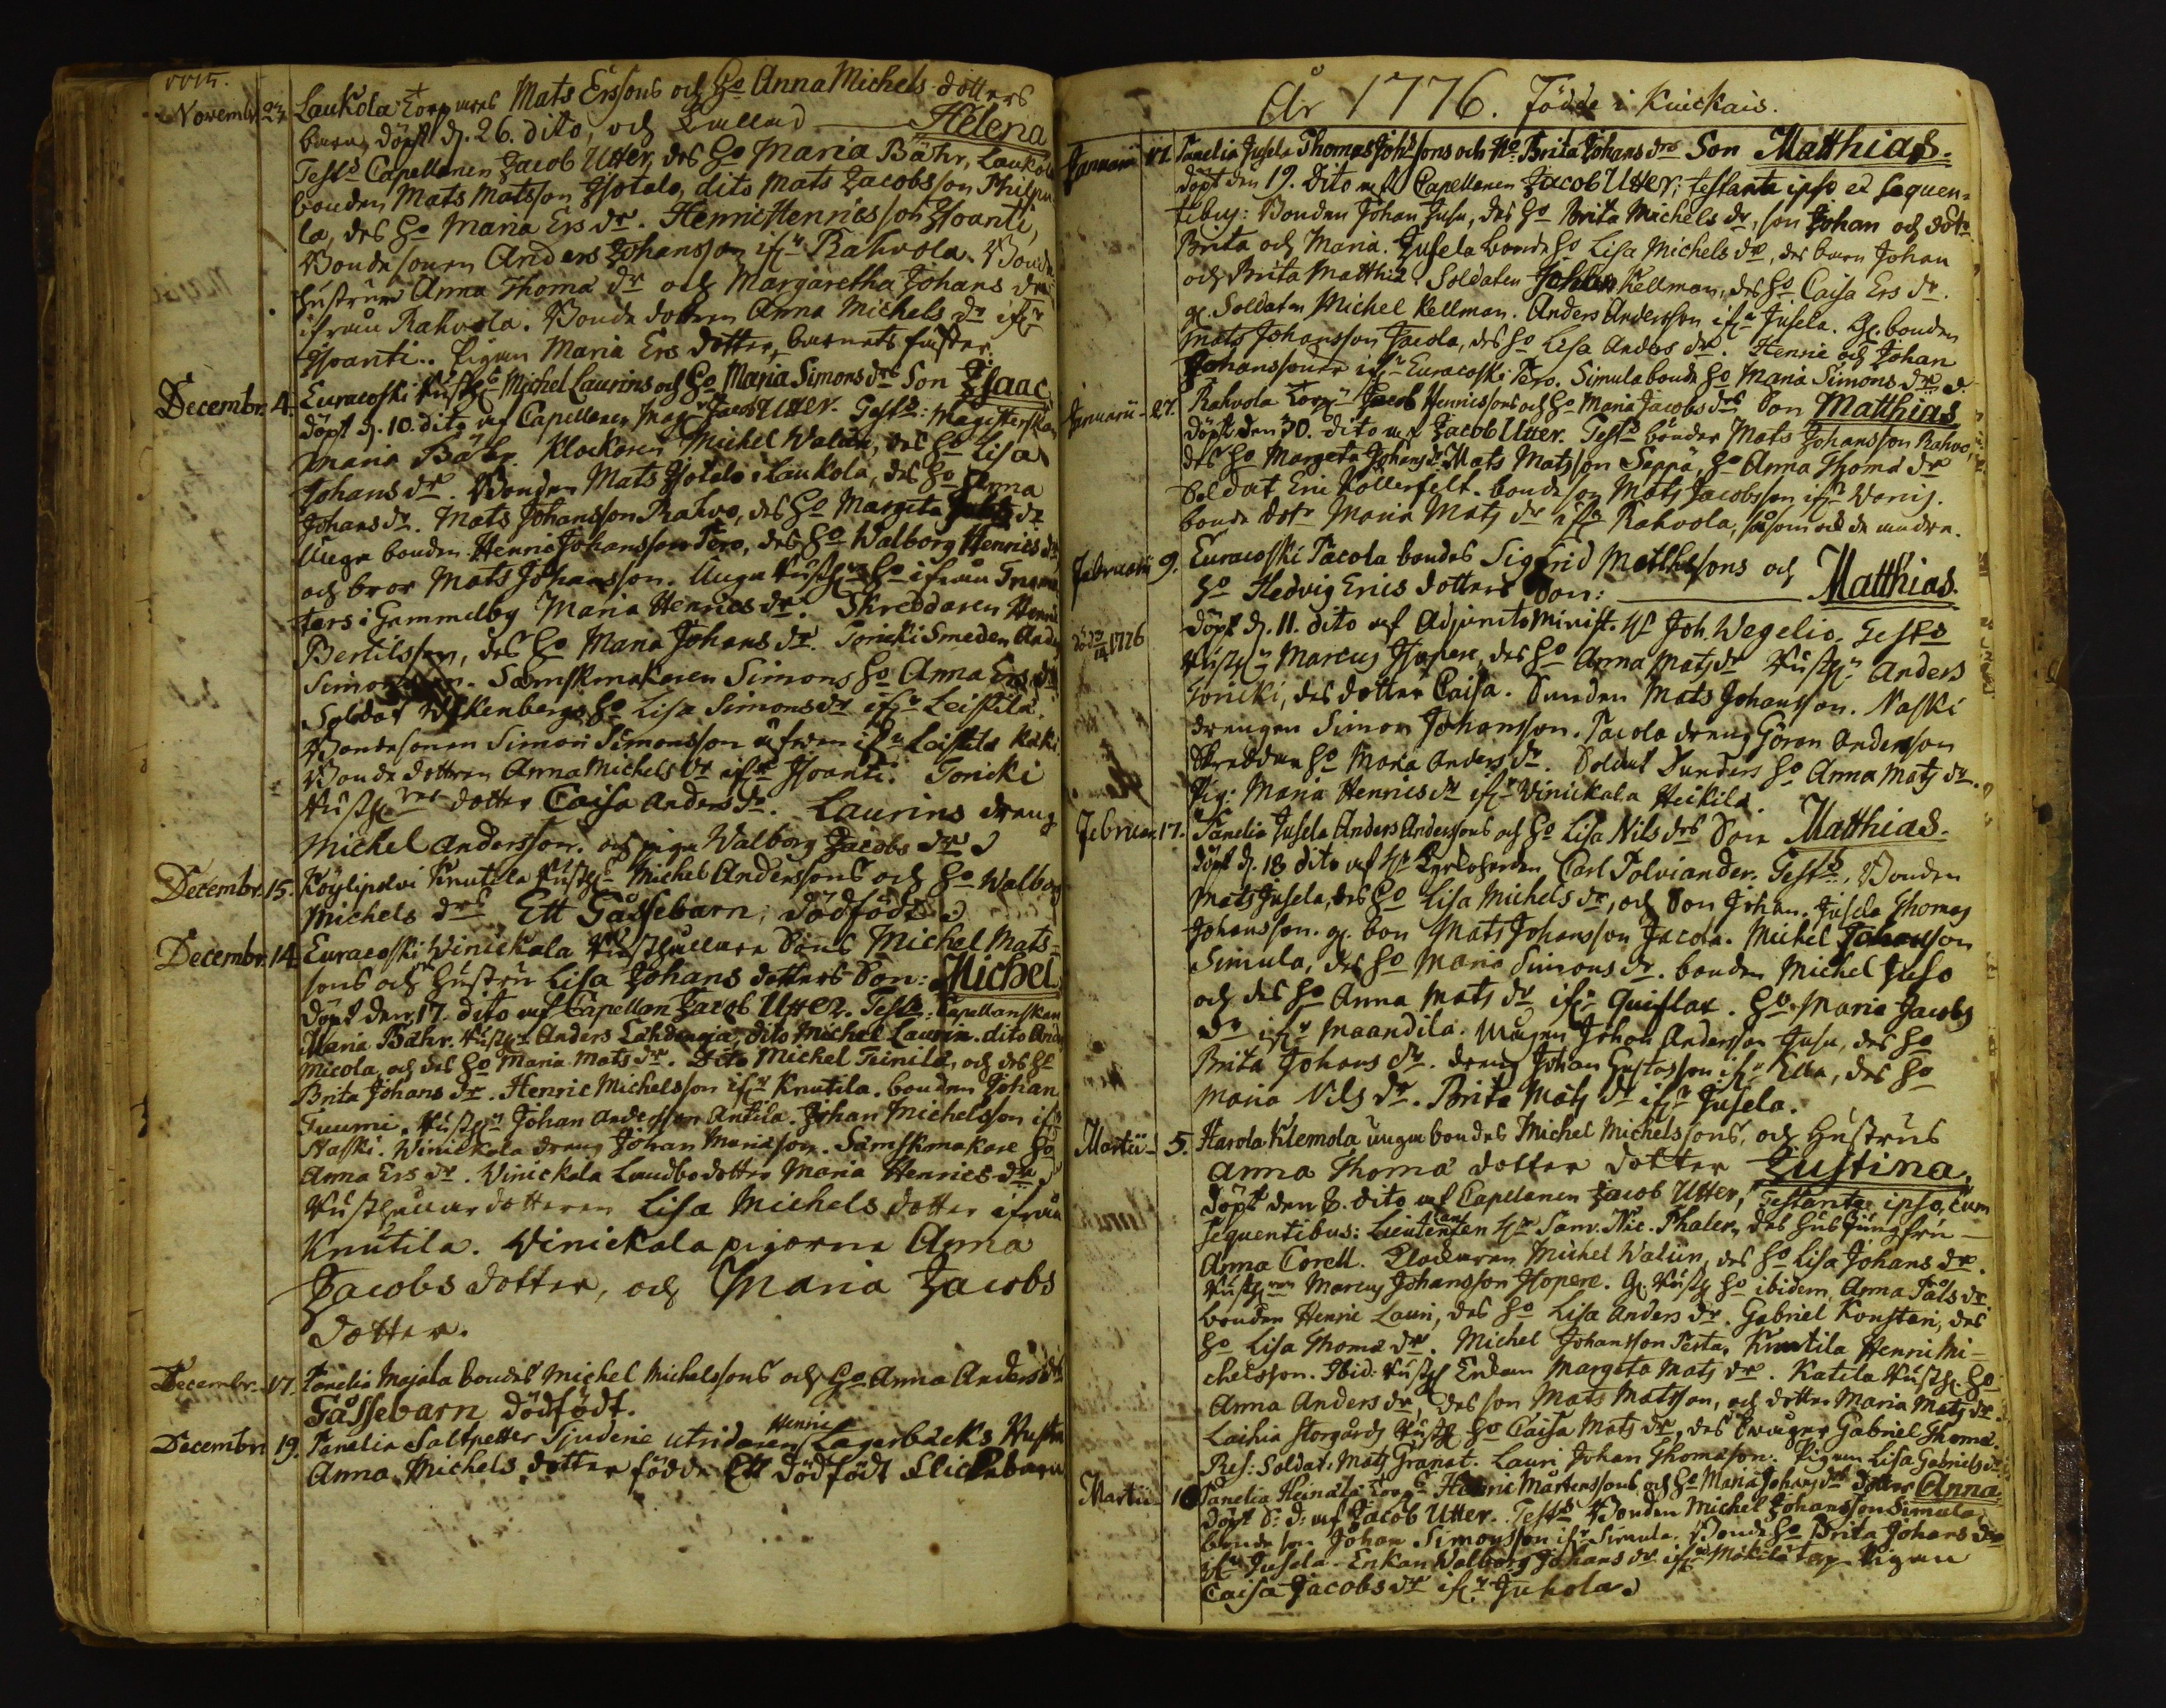 Novemb. 23. Laukola Torpares Mats Erssons och Ho Anna Michels dotters
barn, döpt d. 26. dito, och kallad Helena
Test: Capellanen Jacob Utter, des Ho Maria Bähr, Laukola
bonden Mats Matsson Isotalo, dito Mats Jacobsson
la, des Ho Maria Ers dr. Henric Henricsson Isoanti,
Bondesonen Anders Johansson ifrn Rahvola. Bonde
hustrun Anna Thomæ dr och Margaretha Johans dr
ifrån Rahvola. Bonde dottren Anna Michels dr ifrn
Isoanti. Pigan Maria Ers dotter, barnets faster.
Decembr. 4. Euracoski Rusth. Michel Laurins och Ho Maria Simons drs Son Isaac
döpt d. 10. dito af Capellanen Mag. Jacob Utter. Test: Magisterskan
Maria Bähr. Klockaren Michel Walin, des Ho Lisa
Johans dr. Bonden Mats Isotalo i Laukola, des Ho Anna
Johans dr. Mats Johansson Rahvo, des Ho Margeta dr
Unga bonden Henric Johansson Tero, des Ho Walborg Henrics dr
och bror Mats Johansson. Unga Rusth. Ho ifrån
ters i Gammelby Maria Henrics dr. Skreddaren Henric
Bertilsson, des Ho Maria Johans dr. Toricki Smeden Anders
Simonsson. Sämskmakaren Simons Ho Anna Ers dr
Soldat Wikenbergs Ho Lisa Simons dr ifrn Leistilä.
Bondesonen Simon Simonsson äfven ifrn Leistilä
Bonde dottren Anna Michels dr ifrn Isoanti. Toricki
Rusth. dotter Caisa Anders dr. Laurins dreng
Michel Andersson. och pigan Walborg Jacobs dr
Decembr. 15. Köylipolvi Knutila Rusth. Michel Anderssons och Ho Walborg
Michels drs Ett Gåssebarn, dödfödt
Decembr. 14. Euracoski Winickala Rusthållare Sons Michel Mats-
sons och hustru Lisa Johans dotters Son: Michel
Döpt den 17. dito af Capellan Jacob Utter. Test: Capellanskan
Maria Bähr. Rusth. Anders Lähdenoja, dito Michel Laurin. dito Anders
Micola, och des Ho Maria Mats dr. Dito Michel Teinilä, och des Ho
Brita Johans dr. Henric Michelsson ifrn Knutila. bonden Johan
Tuumi. Rusth. Johan Andersson Antila. Johan Michelsson ifrn
Naski. Winickala dreng Johan Mariason. Sämskmakare Ho
Anna Ers dr. Winickala Landbodotter Maria Henrics dr
Rusthållar dotteren Lisa Michels dotter ifrån
Knutila. Winickala pigorna Anna
Jacobs dotter, och Maria Jacobs
dotter.
Decembr. 17. Panelia Majala bondes Michel Michelssons och Ho Anna Anders drs
Gåssebarn dödfödt.
Decembr. 19. Panelia Saltpetter Sjuderie utridaren Henric Lagerbäcks Hustru
Anna Michels dotter födde Ett dödfödt flickebarn
År 1776. Födde i Kiuckais.
Januarii 17. Panelia Jusela Thomas Johssons och Ho Brita Johans drs Son Matthias.
döpt den 19. dito af Capellanen Jacob Utter; testante ipso et sequen-
tibus: Bonden Johan Jusu, des Ho Brita Michels dr, son Johan och dotr
Brita och Maria. Jusela bonde Ho Lisa Michels dr, des barn Johan
och Brita Matthiæ. Soldaten Johan Kellman, des Ho Caisa Ers dr.
g. Soldaten Michel Kellman. Anders Andersson ifrn Jusela. g. bonden
Mats Johansson Jacola, des Ho Lisa Anders dr. Henric och Johan
Johanssöner ifrn Euracoski Tero. Simula bonde Ho Maria Simons dr
Januarii 27. Rahvola Torp. Jacob Henricssons och Ho Maria Jacobs drs Son Matthias
döpt den 30. dito af Jacob Utter. Test: bönder Mats Johansson Rahvo,
des Ho Margeta Johans dr. Mats Matsson Seppä, Ho Anna Thomæ dr
Soldat Eric Kållerfelt. bonde son Mats Jacobsson ifrn
bonde dotr Maria Mats dr ifrn Rahvola, såsom ock de andre.
Februarii 9. Euracoski Pacola bondes Sigfrid Mattssons och
Ho Hedvig Erics dotters Son: Matthias.
död 1776
döpt d. 11. dito af Adjuncto Minist. Hr Joh. Wegelio. Test:
Rusth. Marcus Isopere, des Ho Anna Mats dr Rusth. Anders
Toricki, des dotter Caisa. Mats Johansson. Naski
drengen Simon Johansson. Pacola dreng Göran Andersson
Ho Maria Anders dr. Soldat Sunders Ho Anna Mats dr.
Pig: Maria Henrics dr ifrn Winickala Heikilä.
Februar. 17. Panelia Jusela Anders Anderssons och Ho Lisa Nils drs Son Matthias.
döpt d. 18 dito af Hr Kyrkoherden Carl Polviander. Test: Bonden
Mats Jusela, des Ho Lisa Michels dr, och Son Johan. Jusela Thomas
Johansson. g. bon Mats Johansson Jacola. Michel Johansson
Simula, des Ho Maria Simons dr. bonden Michel Juso
och des Ho Anna Mats dr ifrn Quiflax. Ho Maria Jacobs
dr ifrn Maandila. Mågen Johan Andersson Jusu, des Ho
Brita Johans dr. dreng Johan Gustafsson ifrn Ella, des Ho
Maria Nils dr. Brita Mats dr ifrn Jusela.
Martii 5. Harola Klemola unga bondes Michel Michelssons, och Hustrus
Anna Thomæ dotter dotter Justina,
döpt den 8. dito af Capellanen Jacob Utter, Testante ipso, cum
sequentibus: Lieutenanten Hr Sam. Nic. Thaler, des Hus Jungfru
Anna Corell. Klockaren Michel Walin, des Ho Lisa Johans dr.
Rusth. Marcus Johansson Isopere. g. Rusth Ho ibidem, Anna Påls dr.
bonden Henric Lauri, des Ho Lisa Anders dr. Gabriel Konstari, des
Ho Lisa Thomæ dr. Michel Johansson Pesta, Knutila Henric Mi-
chelsson. Ibid: Rusth Enkan Margeta Mats dr. Katila Rusth. Ho
Anna Anders dr, des son Mats Matsson, och dotter Maria Mats dr.
Laihia Storgårds Rusth Ho Caisa Mats dr, des Swåger Gabriel Thomæ.
Res: Soldat. Mats Granat. Lauri Johan Thomasson. Pigan Lisa Gabriels dr.
Martii 10 Panelia Heinälä Torp. Henric Mårtenssons och Ho Maria Johans drs dotter Anna
döpt S: D: af Jacob Utter. Test: Bonden Michel Johansson Simula,
bonde son Johan Simonsson ifrn Simula. Bonde Ho Brita Johans dr
ifrn Jusela. Enkan Walborg Johans dr ifrn Mäkilä torp. Pigan
Caisa Jacobs dr ifrn Juhola